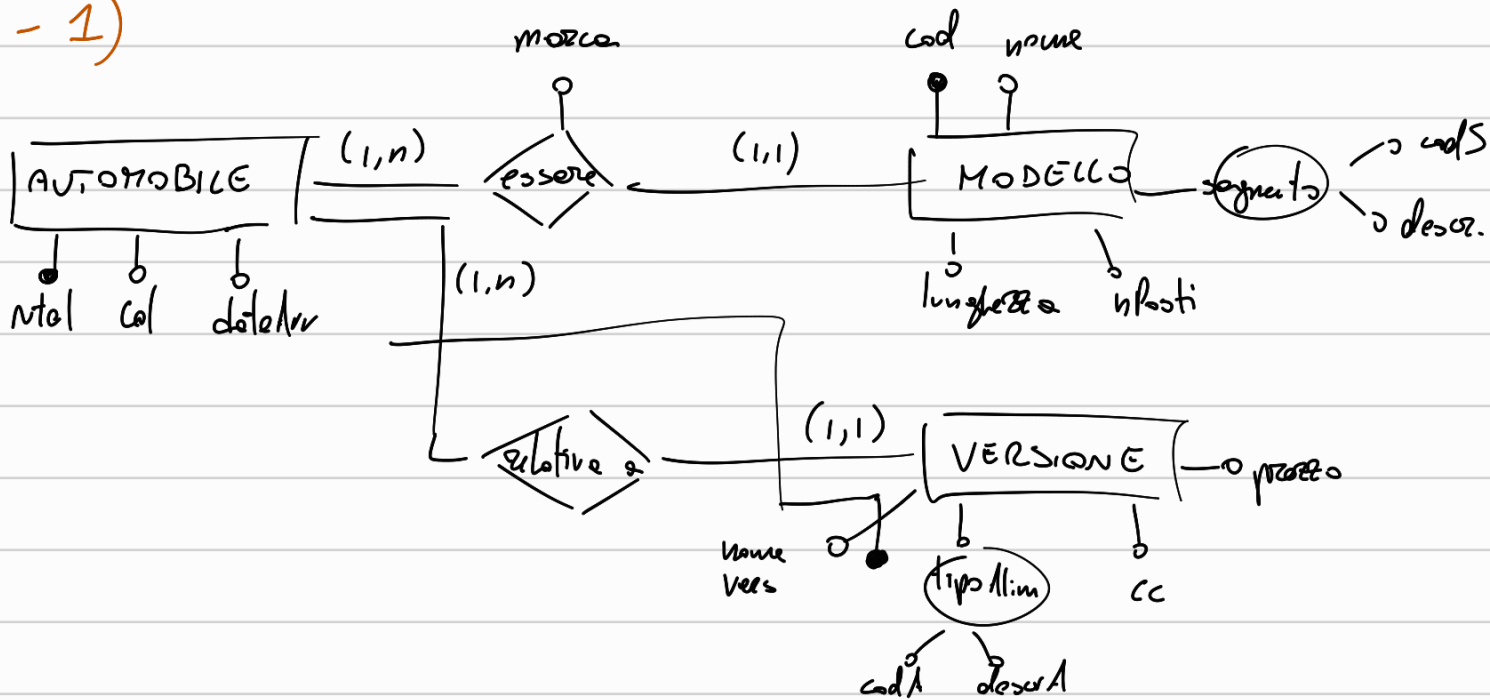 - 1)
marca
cod nome
AUTOMOBILE (1,n) essere (1,1) MODELLO segmento codS
descr.
ntel col dataArr (1,n) lunghezza nPosti
relativa a (1,1) VERSIONE prezzo
nome
vers
tipoAlim cc
codA descrA